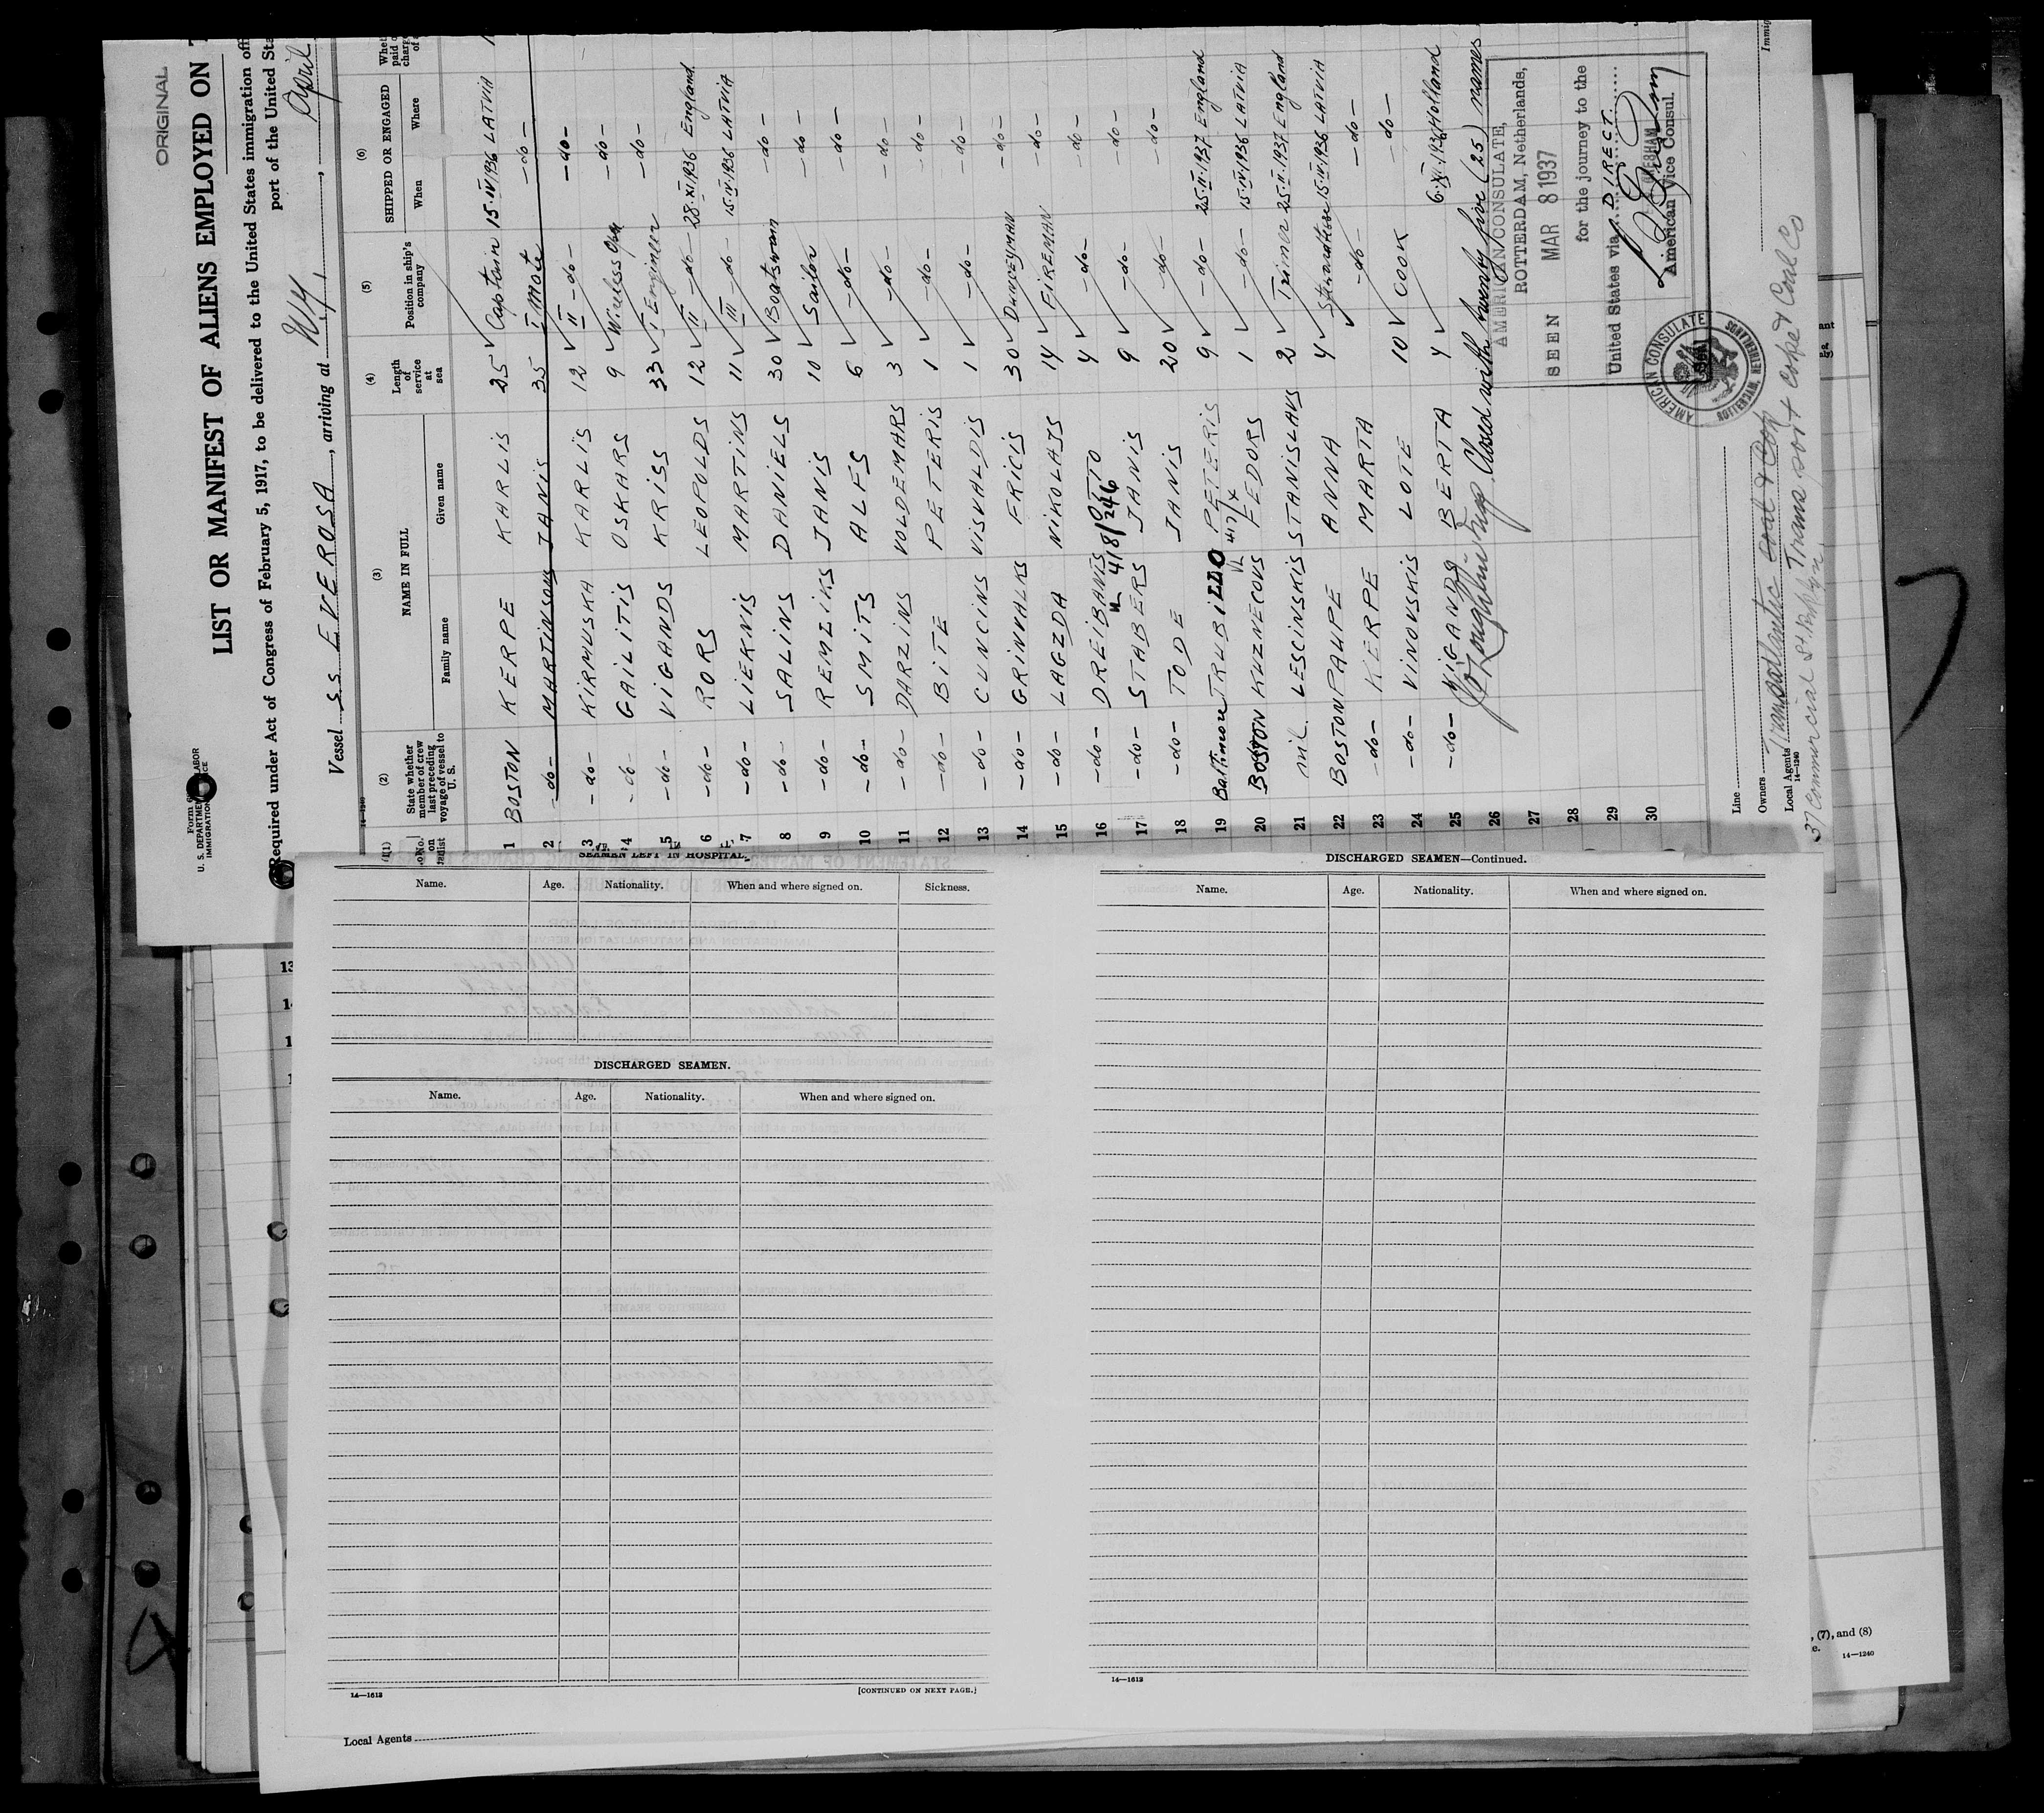 ORIGINAL
U. S. DEPARTMENT OF LABOR
IMMIGRATION SERVICE
LIST OR MANIFEST OF ALIENS EMPLOYED ON
Required under Act of Congress of February 5, 1917, to be delivered to the United States immigration
port of the United
Vessel S.S. EVEROSA, arriving at N.Y., April
14—1240
(1) No. on list (2) State whether member of crew last preceding voyage of vessel to U. S. (3) NAME IN FULL Family name Given name (4) Length of service at sea (5) Position in ship's company (6) SHIPPED OR ENGAGED When Where
1 BOSTON KERPE KARLIS 25 Captain 15.IV.1936 LATVIA
2 -do- MARTINSONS JANIS 35 I Mate -do-
3 -do- KIRMUSKA KARLIS 12 II -do- -do-
4 -do- GAILITIS OSKARS 9 Wireless Opr -do-
5 -do- VIGANDS KRISS 33 I Engineer -do-
6 -do- RORS LEOPOLDS 12 II -do- 28.XI.1936 England
7 -do- LIEKNIS MARTINS 11 III -do- 15.IV.1936 LATVIA
8 -do- SALINS DANIELS 30 Boatswain -do-
9 -do- REMZIKS JANIS 10 Sailor -do-
10 -do- SMITS ALFS 6 -do- -do-
11 -do- DARZINS VOLDEMARS 3 -do- -do-
12 -do- BITE PETERIS 1 -do- -do-
13 -do- CUNCINS VISVALDIS 1 -do- -do-
14 -do- GRINVALKS FRICIS 30 DUNKEYMAN -do-
15 -do- LAGZDA NIKOLAJS 14 FIREMAN -do-
16 -do- DREIBANTS OTTO 4 -do- -do-
418/246
17 -do- STABERS JANIS 9 -do- -do-
18 -do- TODE JANIS 20 -do- -do-
19 Baltimore TRUBILLO PETERIS 9 -do- 25.II.1937 England
20 BOSTON KUZNECOVS FEDORS 1 -do- 15.IV.1936 LATVIA
21 nil LESCINSKIS STANISLAVS 2 Trimer 25.II.1937 England
22 BOSTON PAUPE ANNA 4 Stewardess 15.IV.1936 LATVIA
23 -do- KERPE MARTA -do- -do-
24 -do- VINOVSKIS LOTE 10 COOK -do-
25 -do- VIGANDS BERTA 4 6.XI.1936 Holland
26 Closed with twenty five (25) names
27
28
29
30
AMERICAN CONSULATE,
ROTTERDAM, Netherlands,
SEEN MAR 8 1937
for the journey to the
United States via DIRECT
American Vice Consul.
AMERICAN CONSULATE
ROTTERDAM, NETHERLANDS
Line
Owners Transatlantic Coal & Cok
Local Agents Transport Coke & Coal Co
14—1240
37 Commercial St Bklyn
SEAMEN LEFT IN HOSPITAL.
Name. Age. Nationality. When and where signed on. Sickness.
DISCHARGED SEAMEN.
Name. Age. Nationality. When and where signed on.
14—1613 [CONTINUED ON NEXT PAGE.]
DISCHARGED SEAMEN—Continued.
Name. Age. Nationality. When and where signed on.
14—1613
Local Agents
, (7), and (8)
14—1240